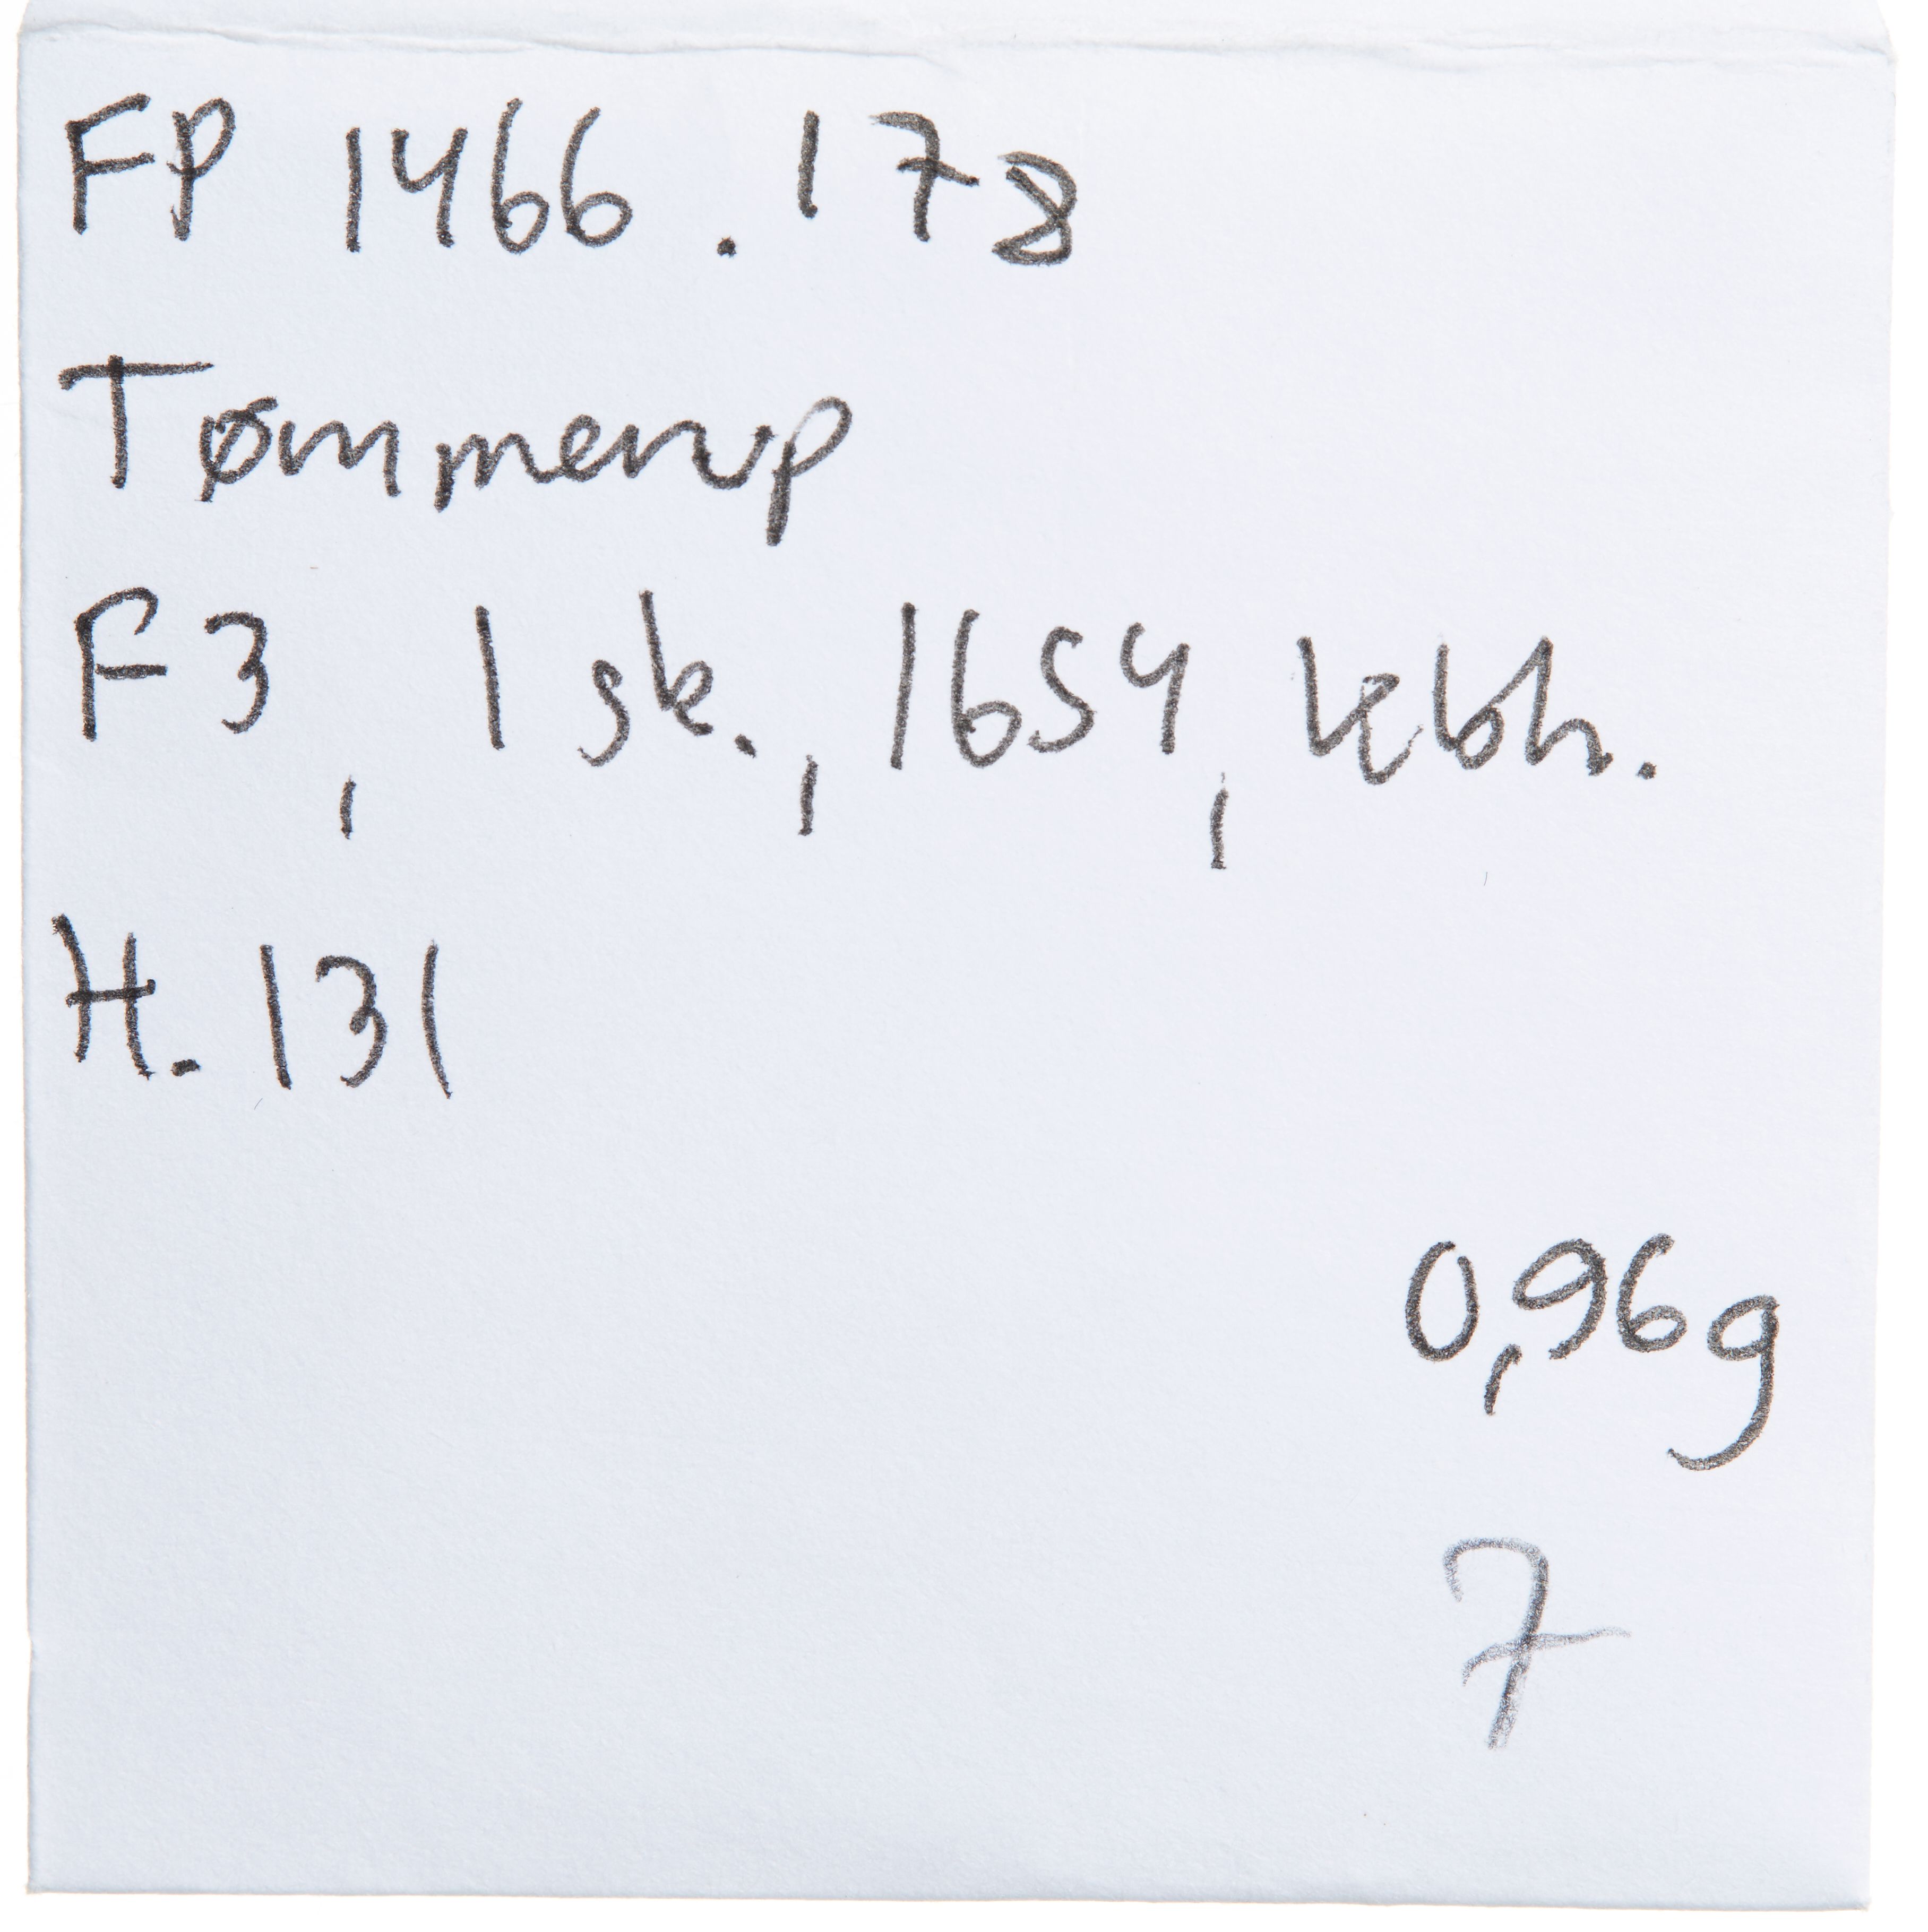 FP 1466.178
Tømmerup
F3, 1 sk., 1654, kbh.
H. 131
0,96g
7